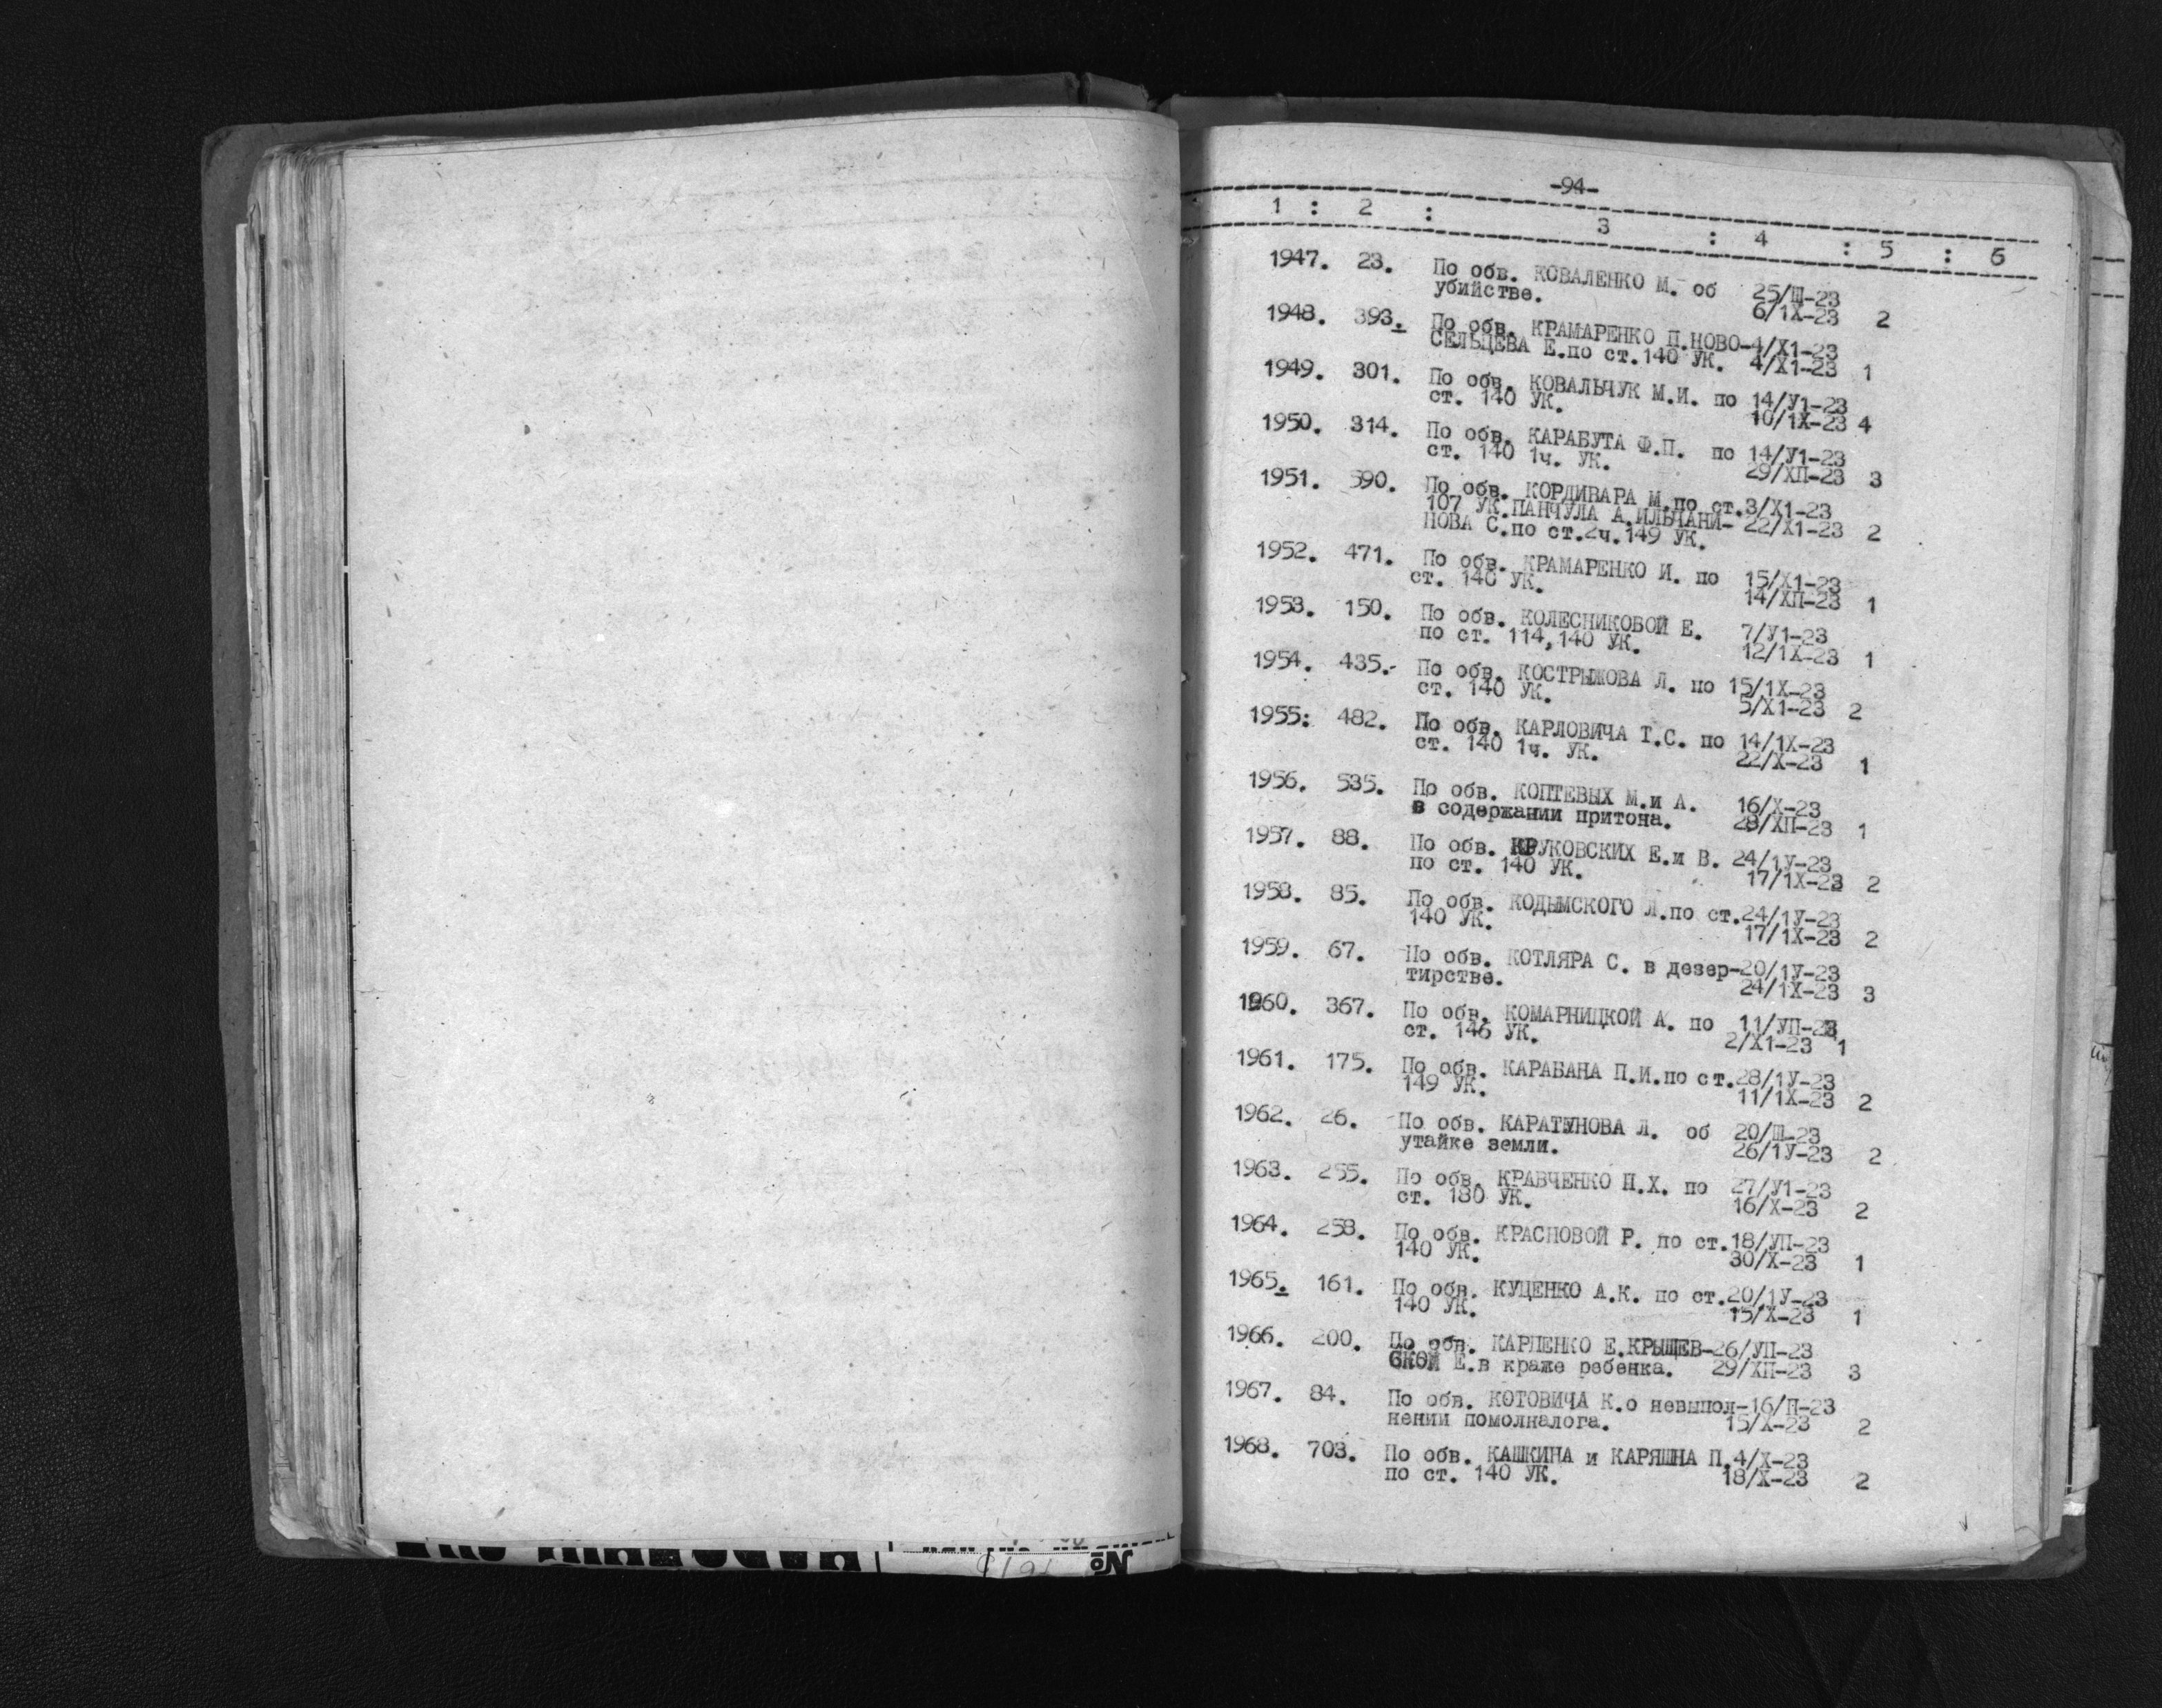 -94-
1 : 2 : 3 : 4 : 5 : 6
1947. 23. По обв. КОВАЛЕНКО М. об 25/Ш-23
убийстве. 6/1Х-23 2
1948. 393. По обв. КРАМАРЕНКО П.НОВО-4/Х1-23
СЕЛЬЦЕВА Е.по ст.140 УК. 4/Х1-23 1
1949. 301. По обв. КОВАЛЬЧУК М.И. по 14/У1-23
ст. 140 УК. 10/1Х-23 4
1950. 314. По обв. КАРАБУТА Ф.П. по 14/У1-23
ст. 140 1ч. УК. 29/ХП-23 3
1951. 590. По обв. КОРДИВАРА М.по ст.3/Х1-23
107 УК.ПАНЧУЛА А.ИЛЬЧАНИ- 22/Х1-23 2
НОВА С.по ст.2ч.149 УК.
1952. 471. По обв. КРАМАРЕНКО И. по 15/Х1-23
ст. 140 УК. 14/ХП-23 1
1953. 150. По обв. КОЛЕСНИКОВОЙ Е. 7/У1-23
по ст. 114,140 УК. 12/1Х-23 1
1954. 435.- По обв. КОСТРЫЖОВА Л. по 15/1Х-23
ст. 140 УК. 5/Х1-23 2
1955: 482. По обв. КАРЛОВИЧА Т.С. по 14/1Х-23
ст. 140 1ч. УК. 22/Х-23 1
1956. 535. По обв. КОПТЕВЫХ М.и А. 16/Х-23
в содержании притона. 28/ХП-23 1
1957. 88. По обв. КРУКОВСКИХ Е.и В. 24/1У-23
по ст. 140 УК. 17/1Х-23 2
1958. 85. По обв. КОДЫМСКОГО Л.по ст.24/1У-23
140 УК. 17/1Х-23 2
1959. 67. По обв. КОТЛЯРА С. в дезер-20/1У-23
тирстве. 24/1Х-23 3
1960. 367. По обв. КОМАРНИЦКОЙ А. по 11/УП-23
ст. 146 УК. 2/Х1-23 1
1961. 175. По обв. КАРАБАНА П.И.по ст.28/1У-23
149 УК. 11/1Х-23 2
1962. 26. По обв. КАРАТУНОВА Л. об 20/Ш-23
утайке земли. 26/1У-23 2
1963. 255. По обв. КРАВЧЕНКО П.Х. по 27/У1-23
ст. 180 УК. 16/Х-23 2
1964. 258. По обв. КРАСНОВОЙ Р. по ст.18/УП-23
140 УК. 30/Х-23 1
1965. 161. По обв. КУЦЕНКО А.К. по ст.20/1У-23
140 УК. 15/Х-23 1
1966. 200. По обв. КАРПЕНКО Е.КРЫЩЕВ-26/УП-23
СКОЙ Е.в краже ребенка. 29/ХП-23 3
1967. 84. По обв. КОТОВИЧА К.о невыпол-16/П-23
нении помолналога. 15/Х-23 2
1968. 703. По обв. КАШКИНА и КАРЯШНА П.4/Х-23
по ст. 140 УК. 18/Х-23 2
№